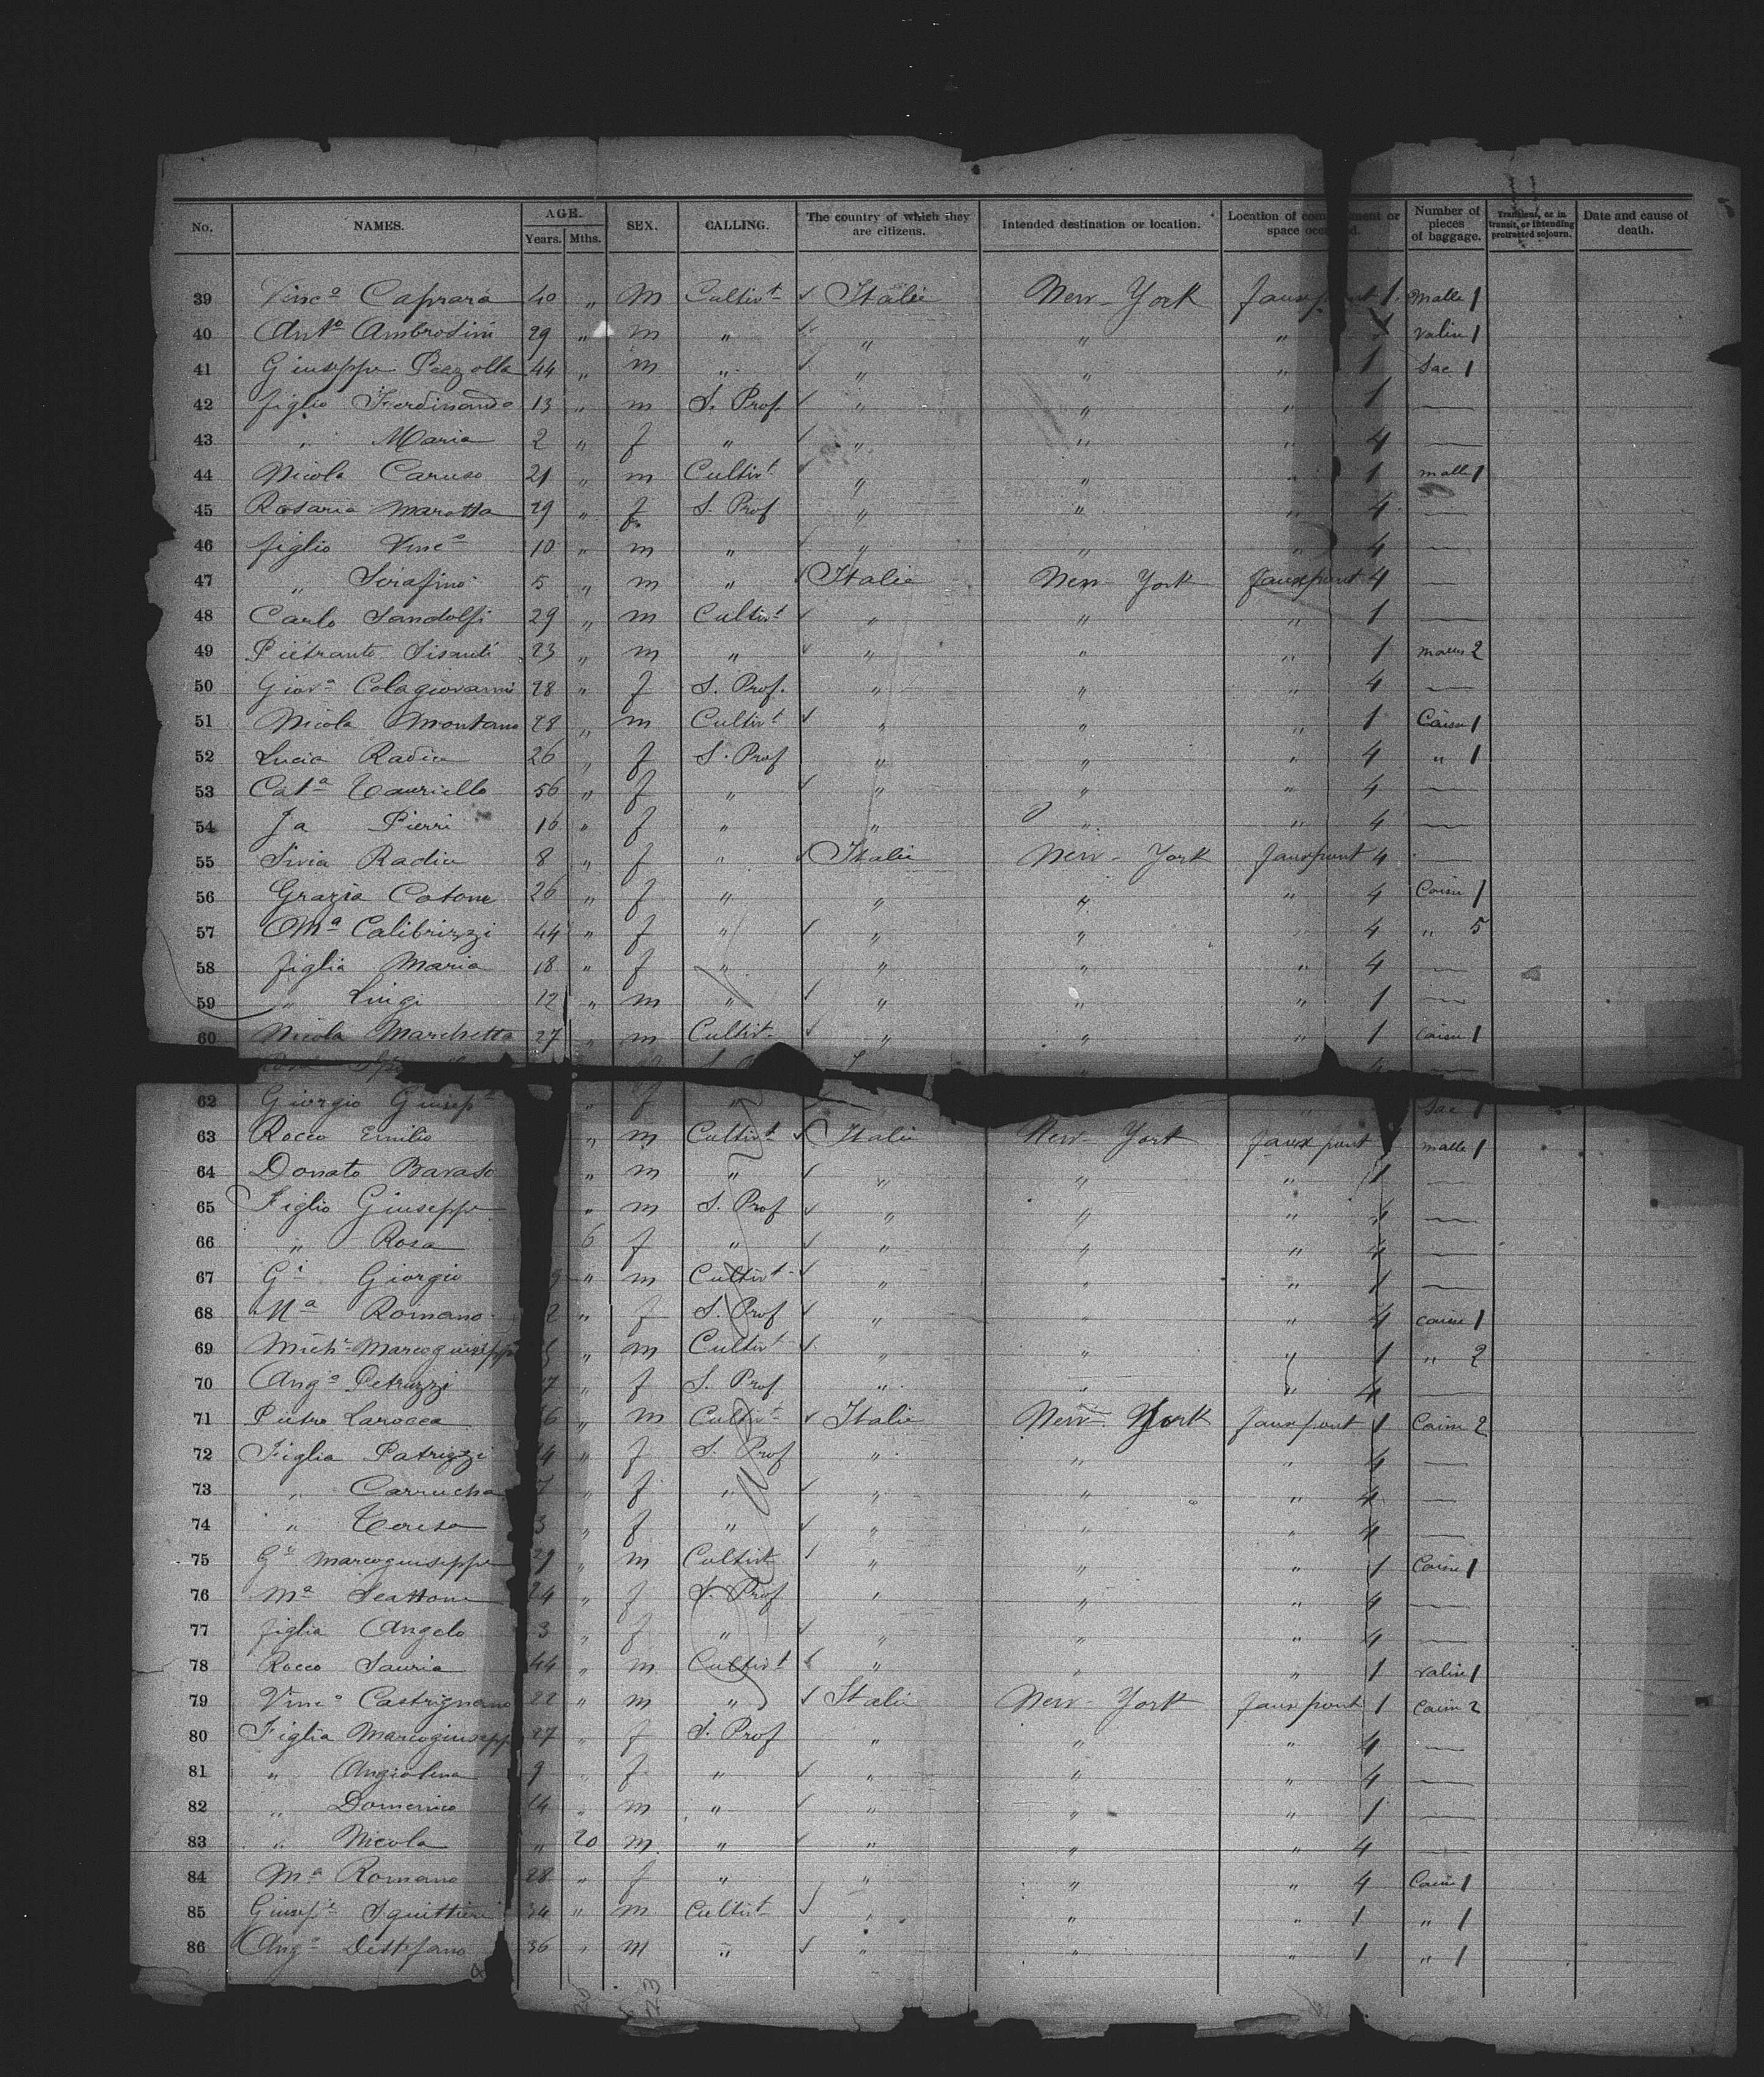 No. NAMES. AGE. Years. Mths. SEX. CALLING. The country of which they are citizens. Intended destination or location. Location of compartment or space occupied. Number of pieces of baggage. Transient, or in transit, or intending protracted sojourn. Date and cause of death.
39 Vinc.o Caprara 40 " m Cultivt Italie New-York fauxpont 1 malle 1
40 Ant.o Ambrosini 29 " m " " " " valise 1
41 Giuseppe Pezzolla 44 " m " " " " 1 Sac 1
42 figlio Ferdinando 13 " m S. Prof. " " " 1 —
43 " Maria 2 " f " " " " 4 —
44 Nicola Caruso 21 " m Cultivt " " " 1 malle 1
45 Rosaria Marotta 29 " f S. Prof " " " 4 —
46 figlio Vinc.o 10 " m " " " " 4 —
47 " Serafino 5 " m " Italie New-York fauxpont 4 —
48 Carlo Sandolfi 29 " m Cultivt " " " 1
49 Pietranto Sisanti 23 " m " " " " 1 malles 2
50 Giov.a Colagiovanni 28 " f S. Prof. " " " 4 —
51 Nicola Montano 28 " m Cultivt " " " 1 Caisse 1
52 Lucia Radice 26 " f S. Prof " " " 4 " 1
53 Cat.a Tauriello 56 " f " " " " 4 —
54 Ja Pierri 16 " f " " " " 4 —
55 Livia Radice 8 " f " Italie New-York fauxpont 4 —
56 Grazia Catone 26 " f " " " " 4 Caisse 1
57 M.a Calibrizzi 44 " f " " " " 4 " 5
58 figlia Maria 18 " f " " " " 4 —
59 " Luigi 12 " m " " " " 1 —
60 Nicola Marchetta 27 " m Cultivt " " " 1 Caisse 1
62 Giorgio Giusep.e " f " " Sac 1
63 Rocco Emilio " m Cultivt Italie New-York faux pont malle 1
64 Donato Barasso " m " " " " 1 —
65 Figlio Giuseppe " m S. Prof " " " —
66 " Rosa 6 f " " " " 4 —
67 G.i Giorgio " m Cultivt " " " 1 —
68 M.a Romano 2 " f S. Prof " " " 4 caisse 1
69 Mich.e Marcogiuseppe " m Cultivt " " " 1 " 2
70 Ang.a Petruzzi 7 " f S. Prof " " " 4 —
71 Pietro Larocca 6 " m Cultivt Italie New-York fauxpont 1 Caisse 2
72 Figlia Patrizzi 4 " f S. Prof " " " 4 —
73 " Carrucha 7 " f " " " " 4 —
74 " Teresa 3 " f " " " " 4 —
75 G.e Marcogiuseppe 29 " m Cultivt " " " 1 Caisse 1
76 M.a Scattone 24 " f S. Prof " " " 4 —
77 figlia Angelo 3 " f " " " " 4 —
78 Rocco Sauria 44 " m Cultivt " " " 1 valise 1
79 Vinc.o Castrignano 22 " m " Italie New-York fauxpont 1 Caisse 2
80 Figlia Marcogiusepp 27 " f S. Prof " " " 4 —
81 " Angiolina 9 " f " " " " 4 —
82 " Domenico 14 " m " " " " 1 —
83 " Nicola " 20 m " " " " 4 —
84 M.a Romano 28 " f " " " " 4 Caisse 1
85 Giusep.e Squittieri 34 " m Cultivt " " " 1 " 1
86 Ang.o Distefano 36 " m " " " " 1 " 1